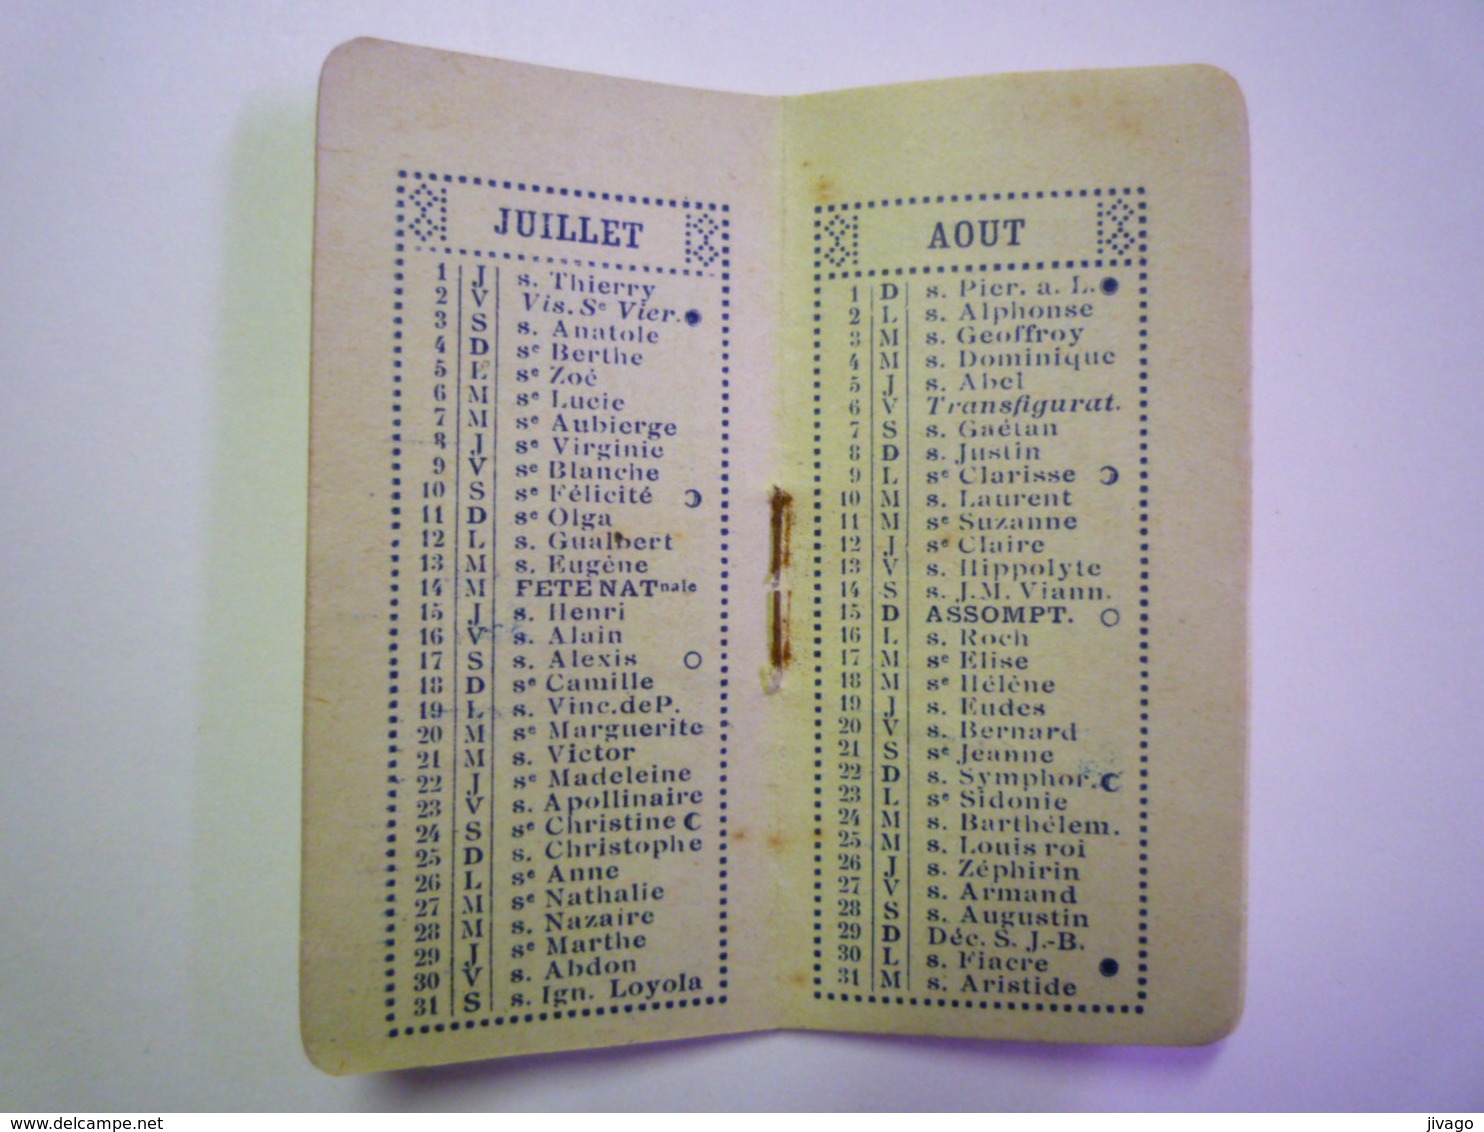 JUILLET
1 J s. Thierry
2 V Vis. Se Vier.
3 S s. Anatole
4 D se Berthe
5 L se Zoé
6 M se Lucie
7 M se Aubierge
8 J se Virginie
9 V se Blanche
10 S se Félicité
11 D se Olga
12 L s. Gualbert
13 M s. Eugène
14 M FETE NATnale
15 J s. Henri
16 V s. Alain
17 S s. Alexis
18 D se Camille
19 L s. Vinc. de P.
20 M se Marguerite
21 M s. Victor
22 J se Madeleine
23 V s. Apollinaire
24 S se Christine
25 D s. Christophe
26 L se Anne
27 M se Nathalie
28 M s. Nazaire
29 J se Marthe
30 V s. Abdon
31 S s. Ign. Loyola
AOUT
1 D s. Pier. a. L.
2 L s. Alphonse
3 M s. Geoffroy
4 M s. Dominique
5 J s. Abel
6 V Transfigurat.
7 S s. Gaétan
8 D s. Justin
9 L se Clarisse
10 M s. Laurent
11 M se Suzanne
12 J se Claire
13 V s. Hippolyte
14 S s. J.M. Viann.
15 D ASSOMPT.
16 L s. Roch
17 M se Elise
18 M se Hélène
19 J s. Eudes
20 V s. Bernard
21 S se Jeanne
22 D s. Symphor.
23 L se Sidonie
24 M s. Barthélem.
25 M s. Louis roi
26 J s. Zéphirin
27 V s. Armand
28 S s. Augustin
29 D Déc. S. J.-B.
30 L s. Fiacre
31 M s. Aristide
www.delcampe.net
jivago